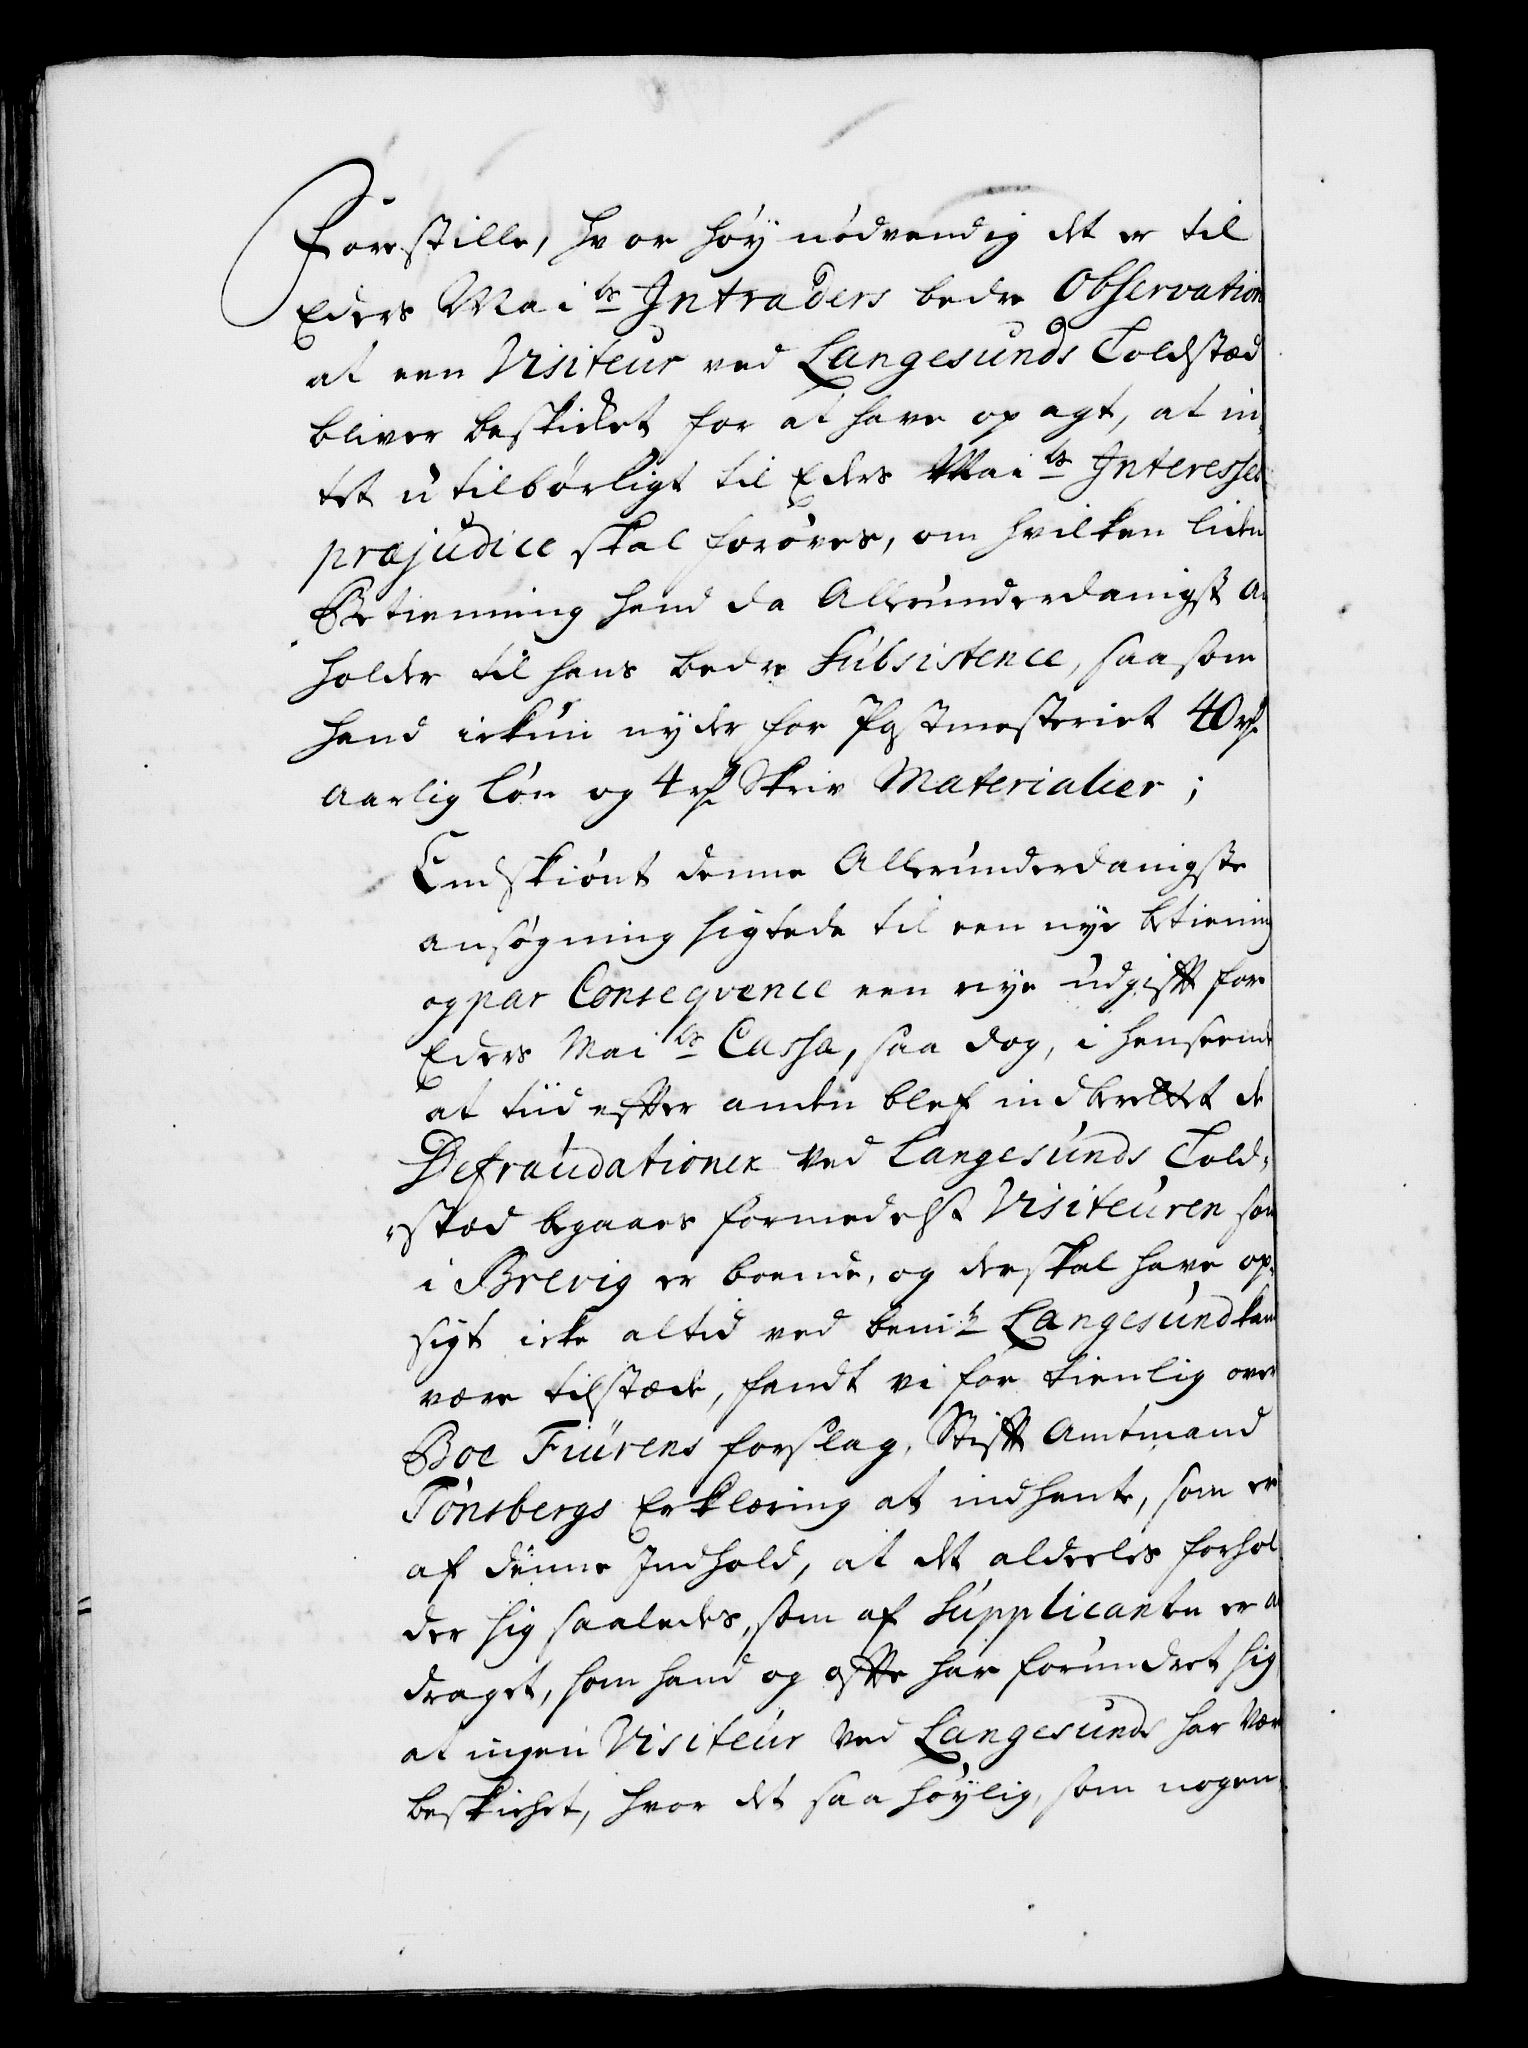 Forestille, hvor høy nødvendig det er til
Eders Mai ts Intraders bedre Observation
at een Visiteur ved Langesunds Toldstæd
bliver beskicket for at have op agt, at in¬
tet utilbørligt til Eders Mai ts Interesses
præjudice skal forøves, om hvilken liden
Betienning hand da Allerunderdanigst an
holder til hans bedre Subsistence, saasom
hand ickun nyder for Postmesteriet 40 rd
Aarlig Løn og 4 rd Skriv Materialier;
Endskiønt denne Allerunderdanigste
ansøgning sigtede til een nye betiening
og par Conseqvence een nye udgift for
Eders Mai ts Cassa, saa dog, i henseende
at tiid efter anden blef indberettet de
Defraudationer ved Langesunds Told¬
stæd begaaes formedelst Visiteuren som
i Brevig er boende, og der skal have op¬
sigt icke altid ved bem.te Langesund kan
være tilstæde, fandt vi for tienlig over
Boe Fiurens forslag, Stift Amtmand
Tønsbergs Erklæring at indhente, som er
af denne Indhold, at det aldeeles forhol
der sig saaledes, som af Supplicanten er an
draget, som hand og ofte har forundret sig
at ingen Visiteur ved Langesunds har vær
beskicket, hvor det saa høylig, som nogen